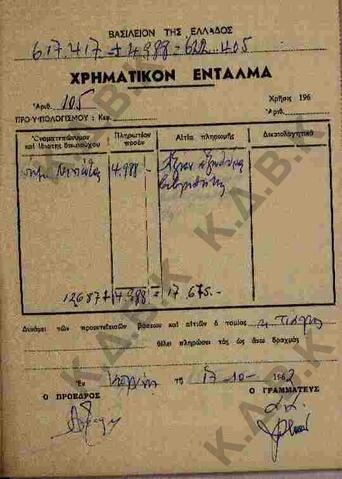 ΒΑΣΙΛΕΙΟΝ ΤΗΣ ΕΛΛΑΔΟΣ
617.417 + 4.988 = 622.405
ΧΡΗΜΑΤΙΚΟΝ ΕΝΤΑΛΜΑ
Ἀριθ. 105 Χρῆσις 196
ΠΡΟ·Υ·ΠΟΛΟΓΙΣΜΟΥ : Κεφ. Ἀριθ.
Ὀνοματεπώνυμον καὶ ἰδιότης δικαιούχου
Πληρωτέον ποσὸν
Αἰτία πληρωμῆς
Δικαιολογητικὰ
4.988 -
12687 + 4.988 = 17.675 -
Δυνάμει τῶν προεκτεθεισῶν βάσεων καὶ αἰτιῶν ὁ ταμίας
θέλει πληρώσει τὰς ὡς ἄνω δραχμὰς
Ἐν τῇ 17-10- 1962
Ο ΠΡΟΕΔΡΟΣ Ο ΓΡΑΜΜΑΤΕΥΣ
Κ.Δ.Β.Κ